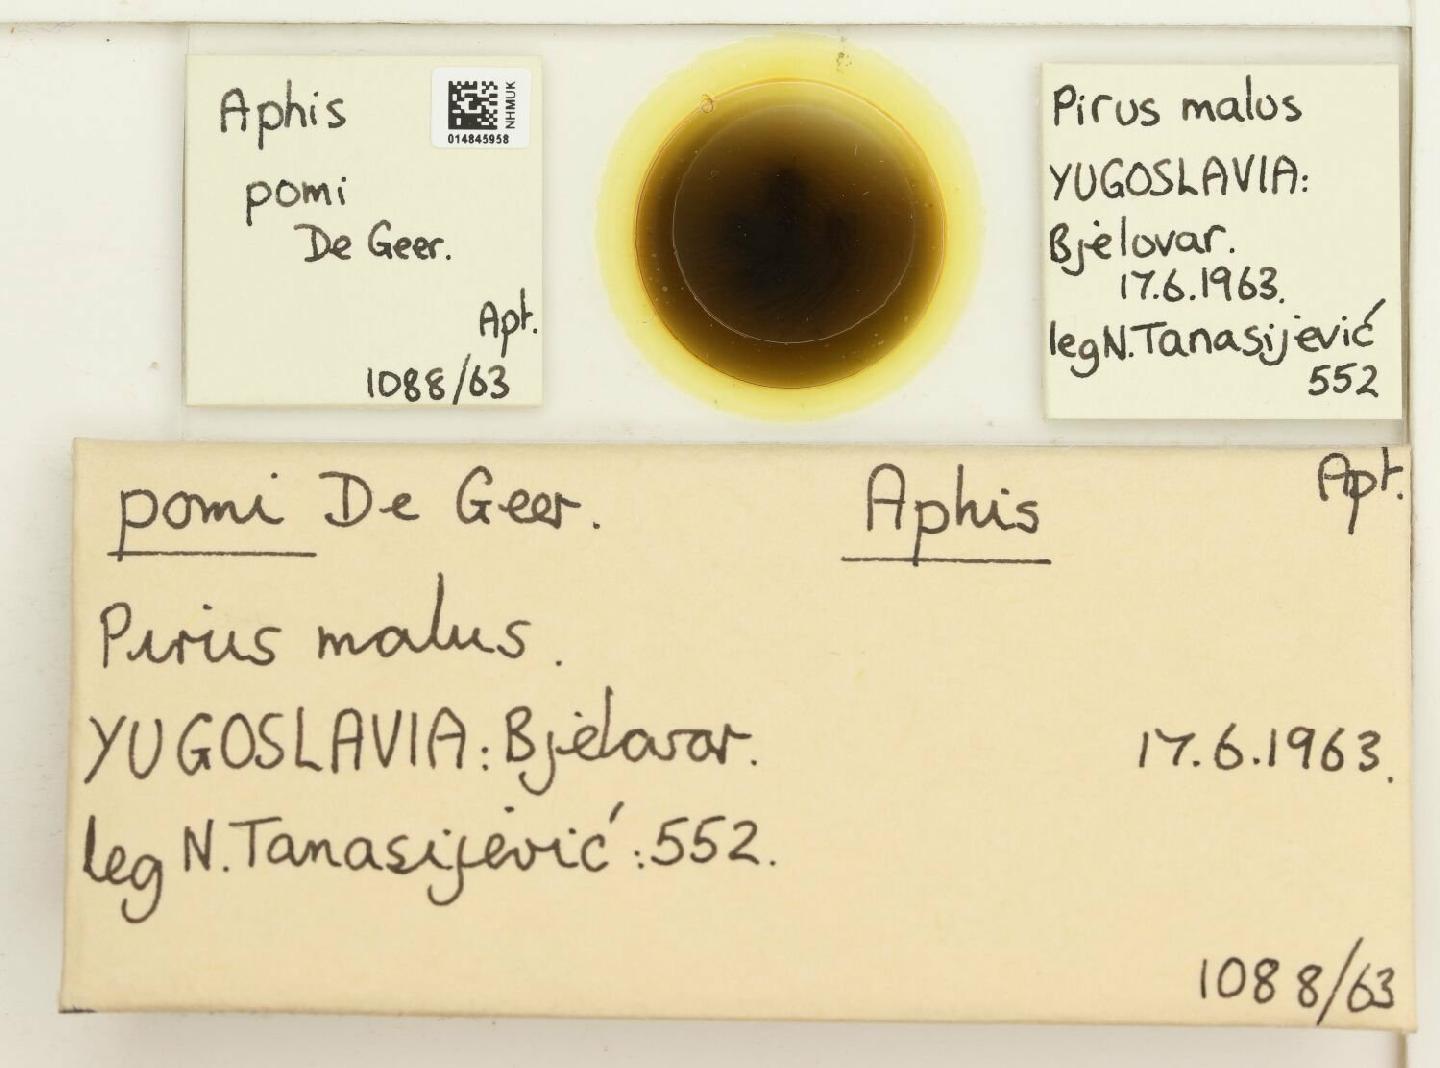 Aphis
pomi
De Geer.
Apt.
1088/63
NHMUK
014845958
Pirus malus
YUGOSLAVIA:
Bjelovar.
17.6.1963.
leg N. Tanasijević
552
pomi De Geer. Aphis Apt.
Pirus malus.
YUGOSLAVIA: Bjelovar. 17.6.1963.
leg N. Tanasijević: 552.
1088/63